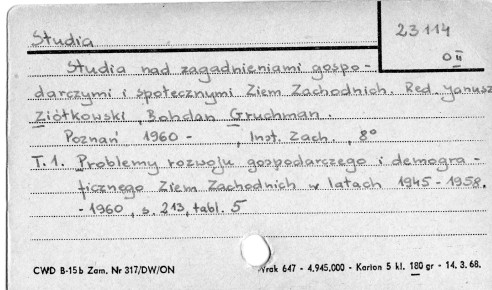 Studia
23114
O II
Studia nad zagadnieniami gospo-
darczymi i społecznymi Ziem Zachodnich. Red. Janusz
Ziółkowski, Bohdan Gruchman.
Poznań 1960 - , Inst. Zach., 8°
T. 1. Problemy rozwoju gospodarczego i demogra-
ficznego Ziem Zachodnich w latach 1945-1958.
- 1960, s. 213, tabl. 5
CWD B-15b Zam. Nr 317/DW/ON
Wrak 647 - 4.945.000 - Karton 5 kl. 180 gr - 14. 3. 68.